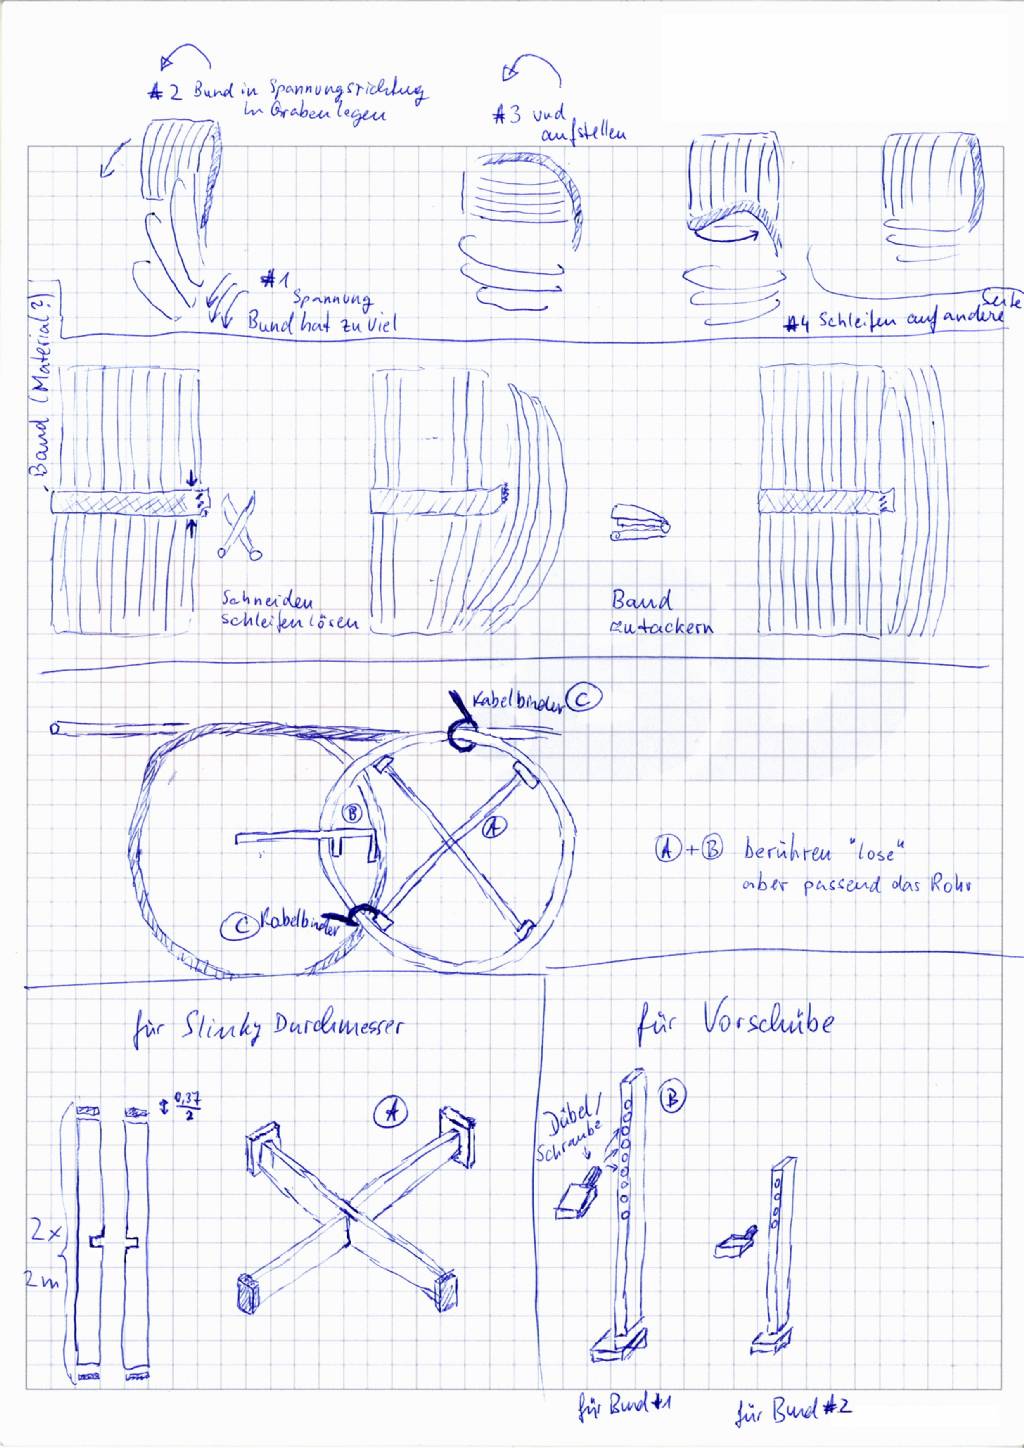 #2 Bund in Spannungsrichtug
in Graben legen
#3 und
aufstellen
#1
Spannung
Bund hat zu viel
#4 Schleifen auf andere
Seite
Band (Material?)
Schneiden
Schleifen lösen
Band
zutackern
Kabelbinder C
B
A
C Kabelbinder
A + B berühren "lose"
aber passend das Rohr
für Slinky Durchmesser
0,37
2
A
2x
2m
für Vorschübe
Dübel/
Schraube
B
für Bund #1
für Bund #2